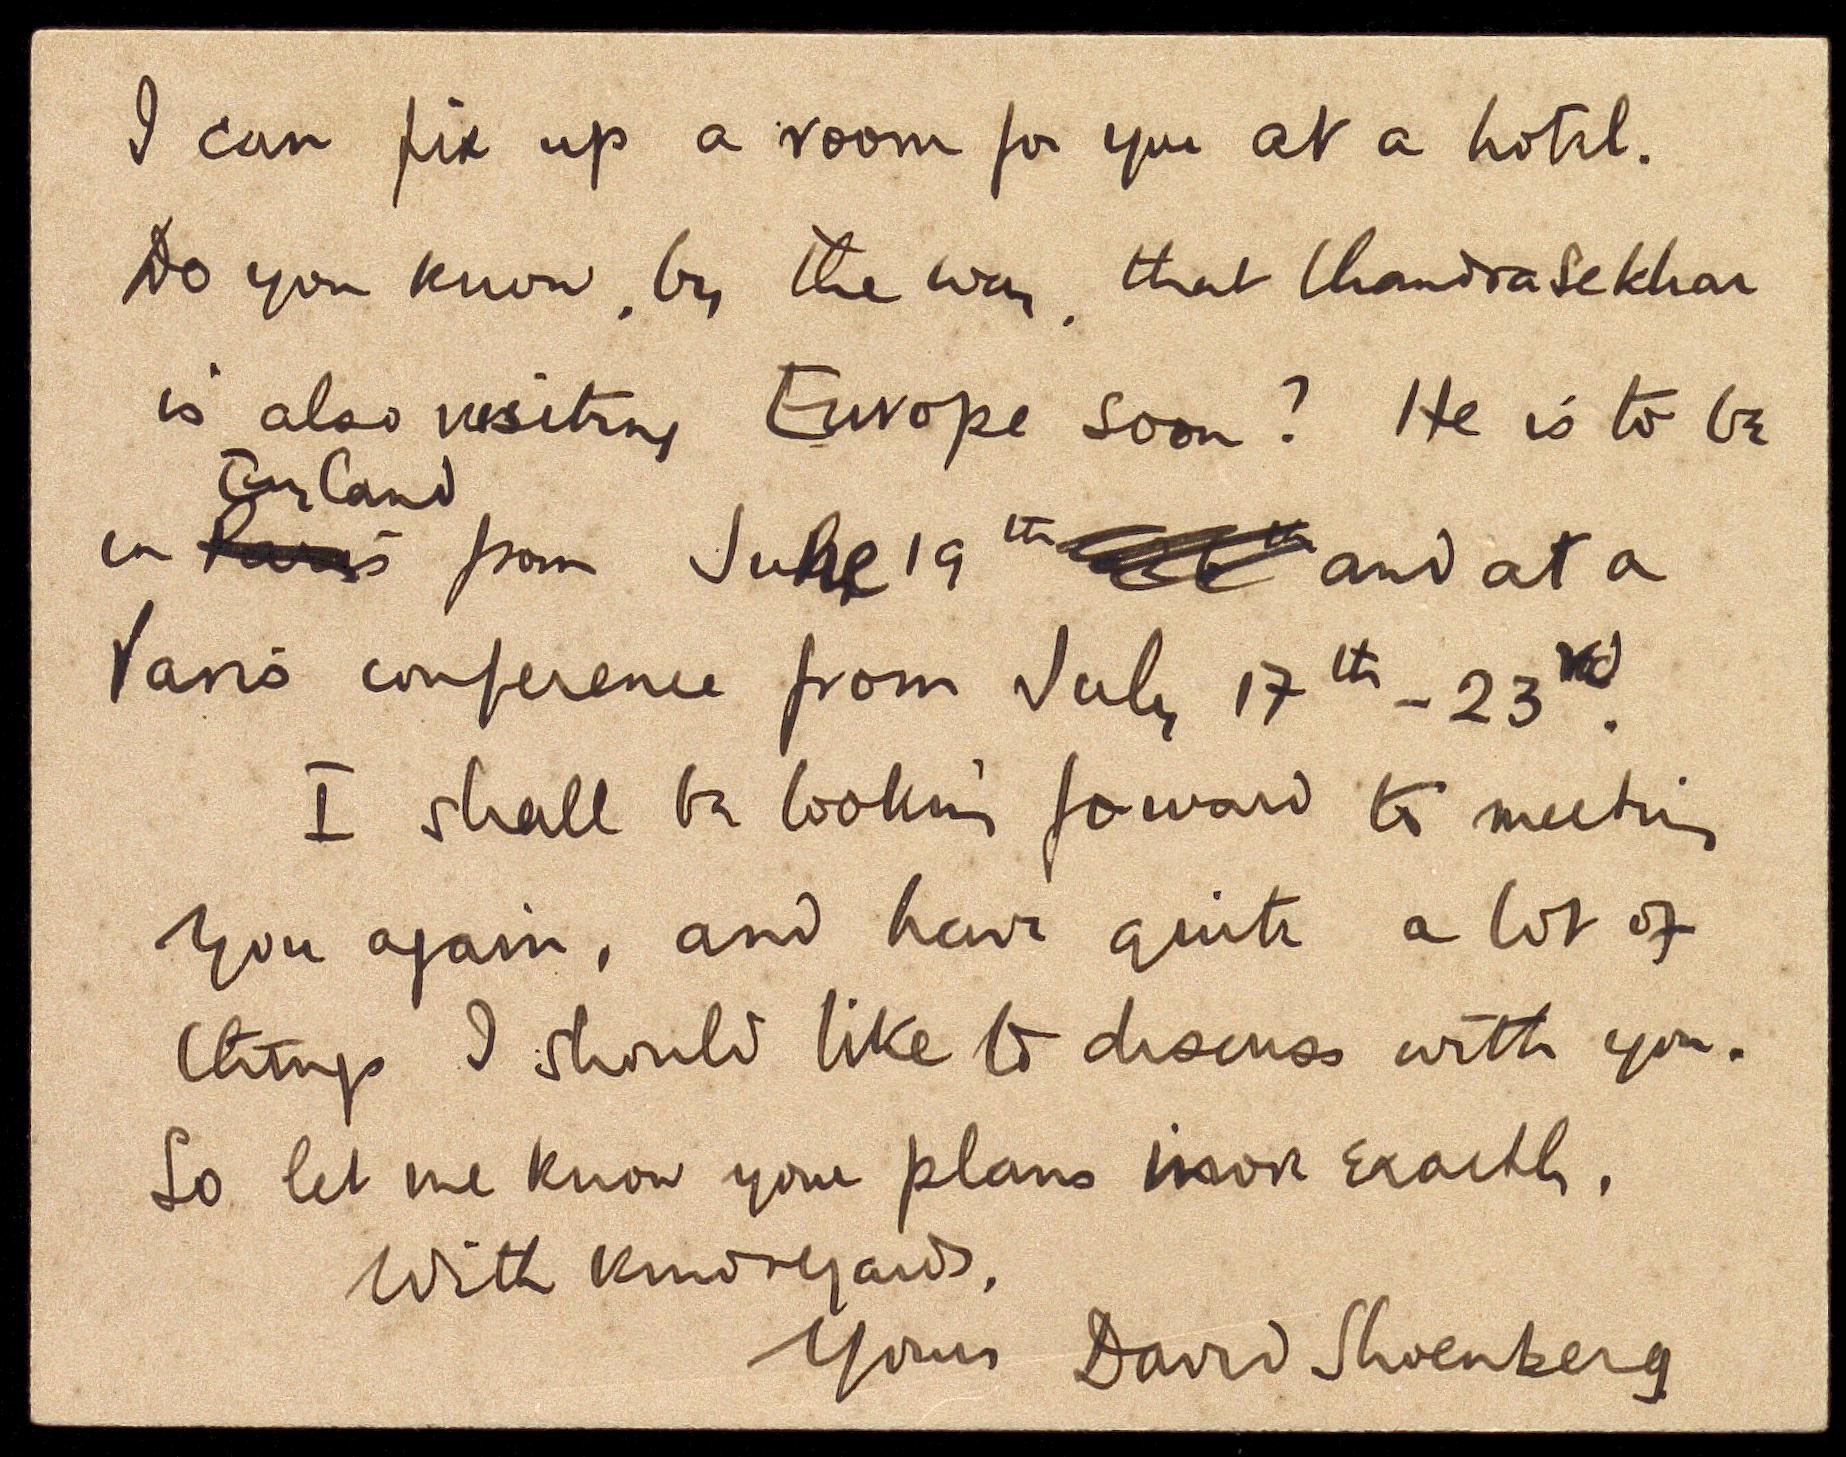 I can fix up a room for you at a hotel.
Do you know, by the way, that Chandrasekhar
is also visiting Europe soon? He is to be
England
in Paris from June 19th and at a
Paris conference from July 17th - 23rd.
I shall be looking forward to meeting
you again, and have quite a lot of
things I should like to discuss with you.
So let me know your plans more exactly.
With kind regards,
Yours David Shoenberg